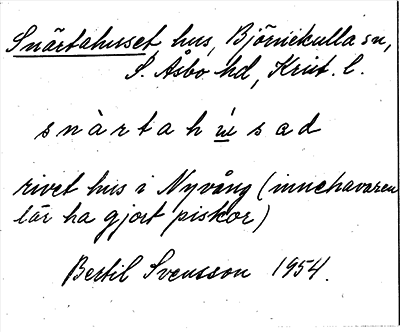 Snärtahuset, hus, Björnekulla sn,
S. Åsbo hd, Krist. l.
snàrtahúsad
rivet hus i Nyvång (innehavaren
lär ha gjort piskor)
Bertil Svensson 1954.